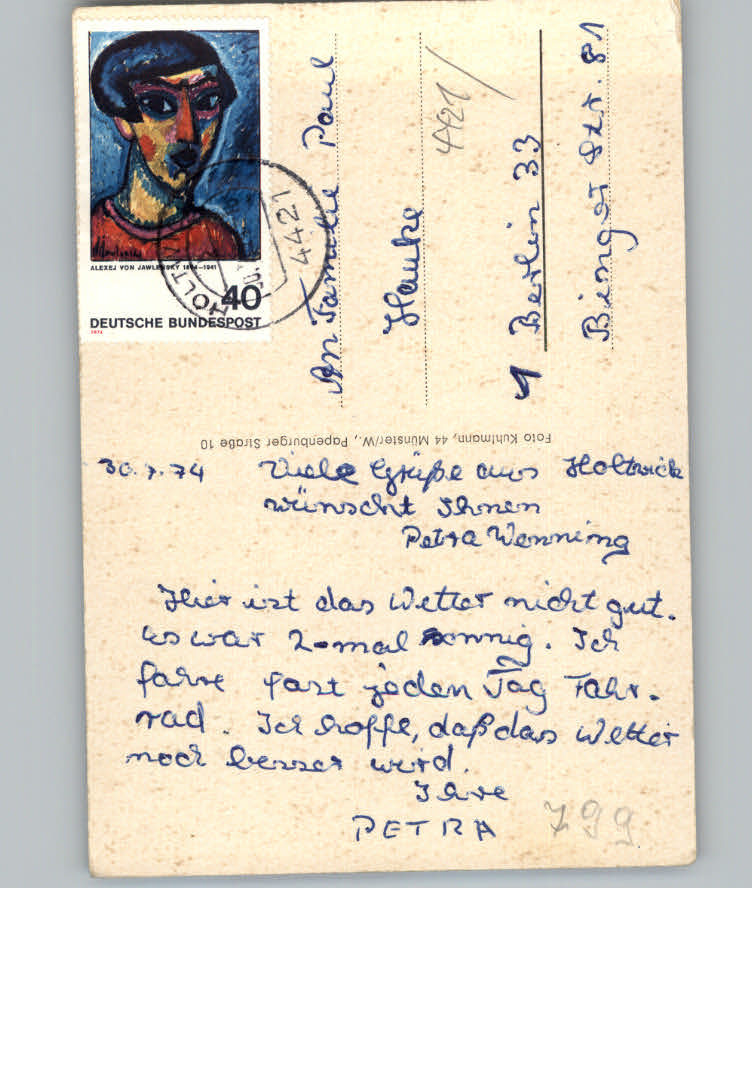 ALEXEJ VON JAWLENSKY 1864–1941
40
DEUTSCHE BUNDESPOST
1974
4421
An Familie Paul
Hauke
4421/
1 Berlin 33
Binger Str. 81
Foto Kuhlmann, 44 Münster/W., Papenburger Straße 10
30.7.74 Viele Grüße aus Holtwick
wünscht Ihnen
Petra Wenning
Hier ist das Wetter nicht gut.
Es war 2-mal sonnig. Ich
fahre fast jeden Tag Fahr-
rad. Ich hoffe, daß das Wetter
noch besser wird.
Ihre
PETRA
799